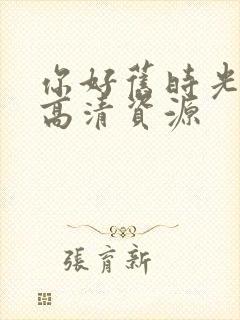 你好舊時光
高清資源
張育新